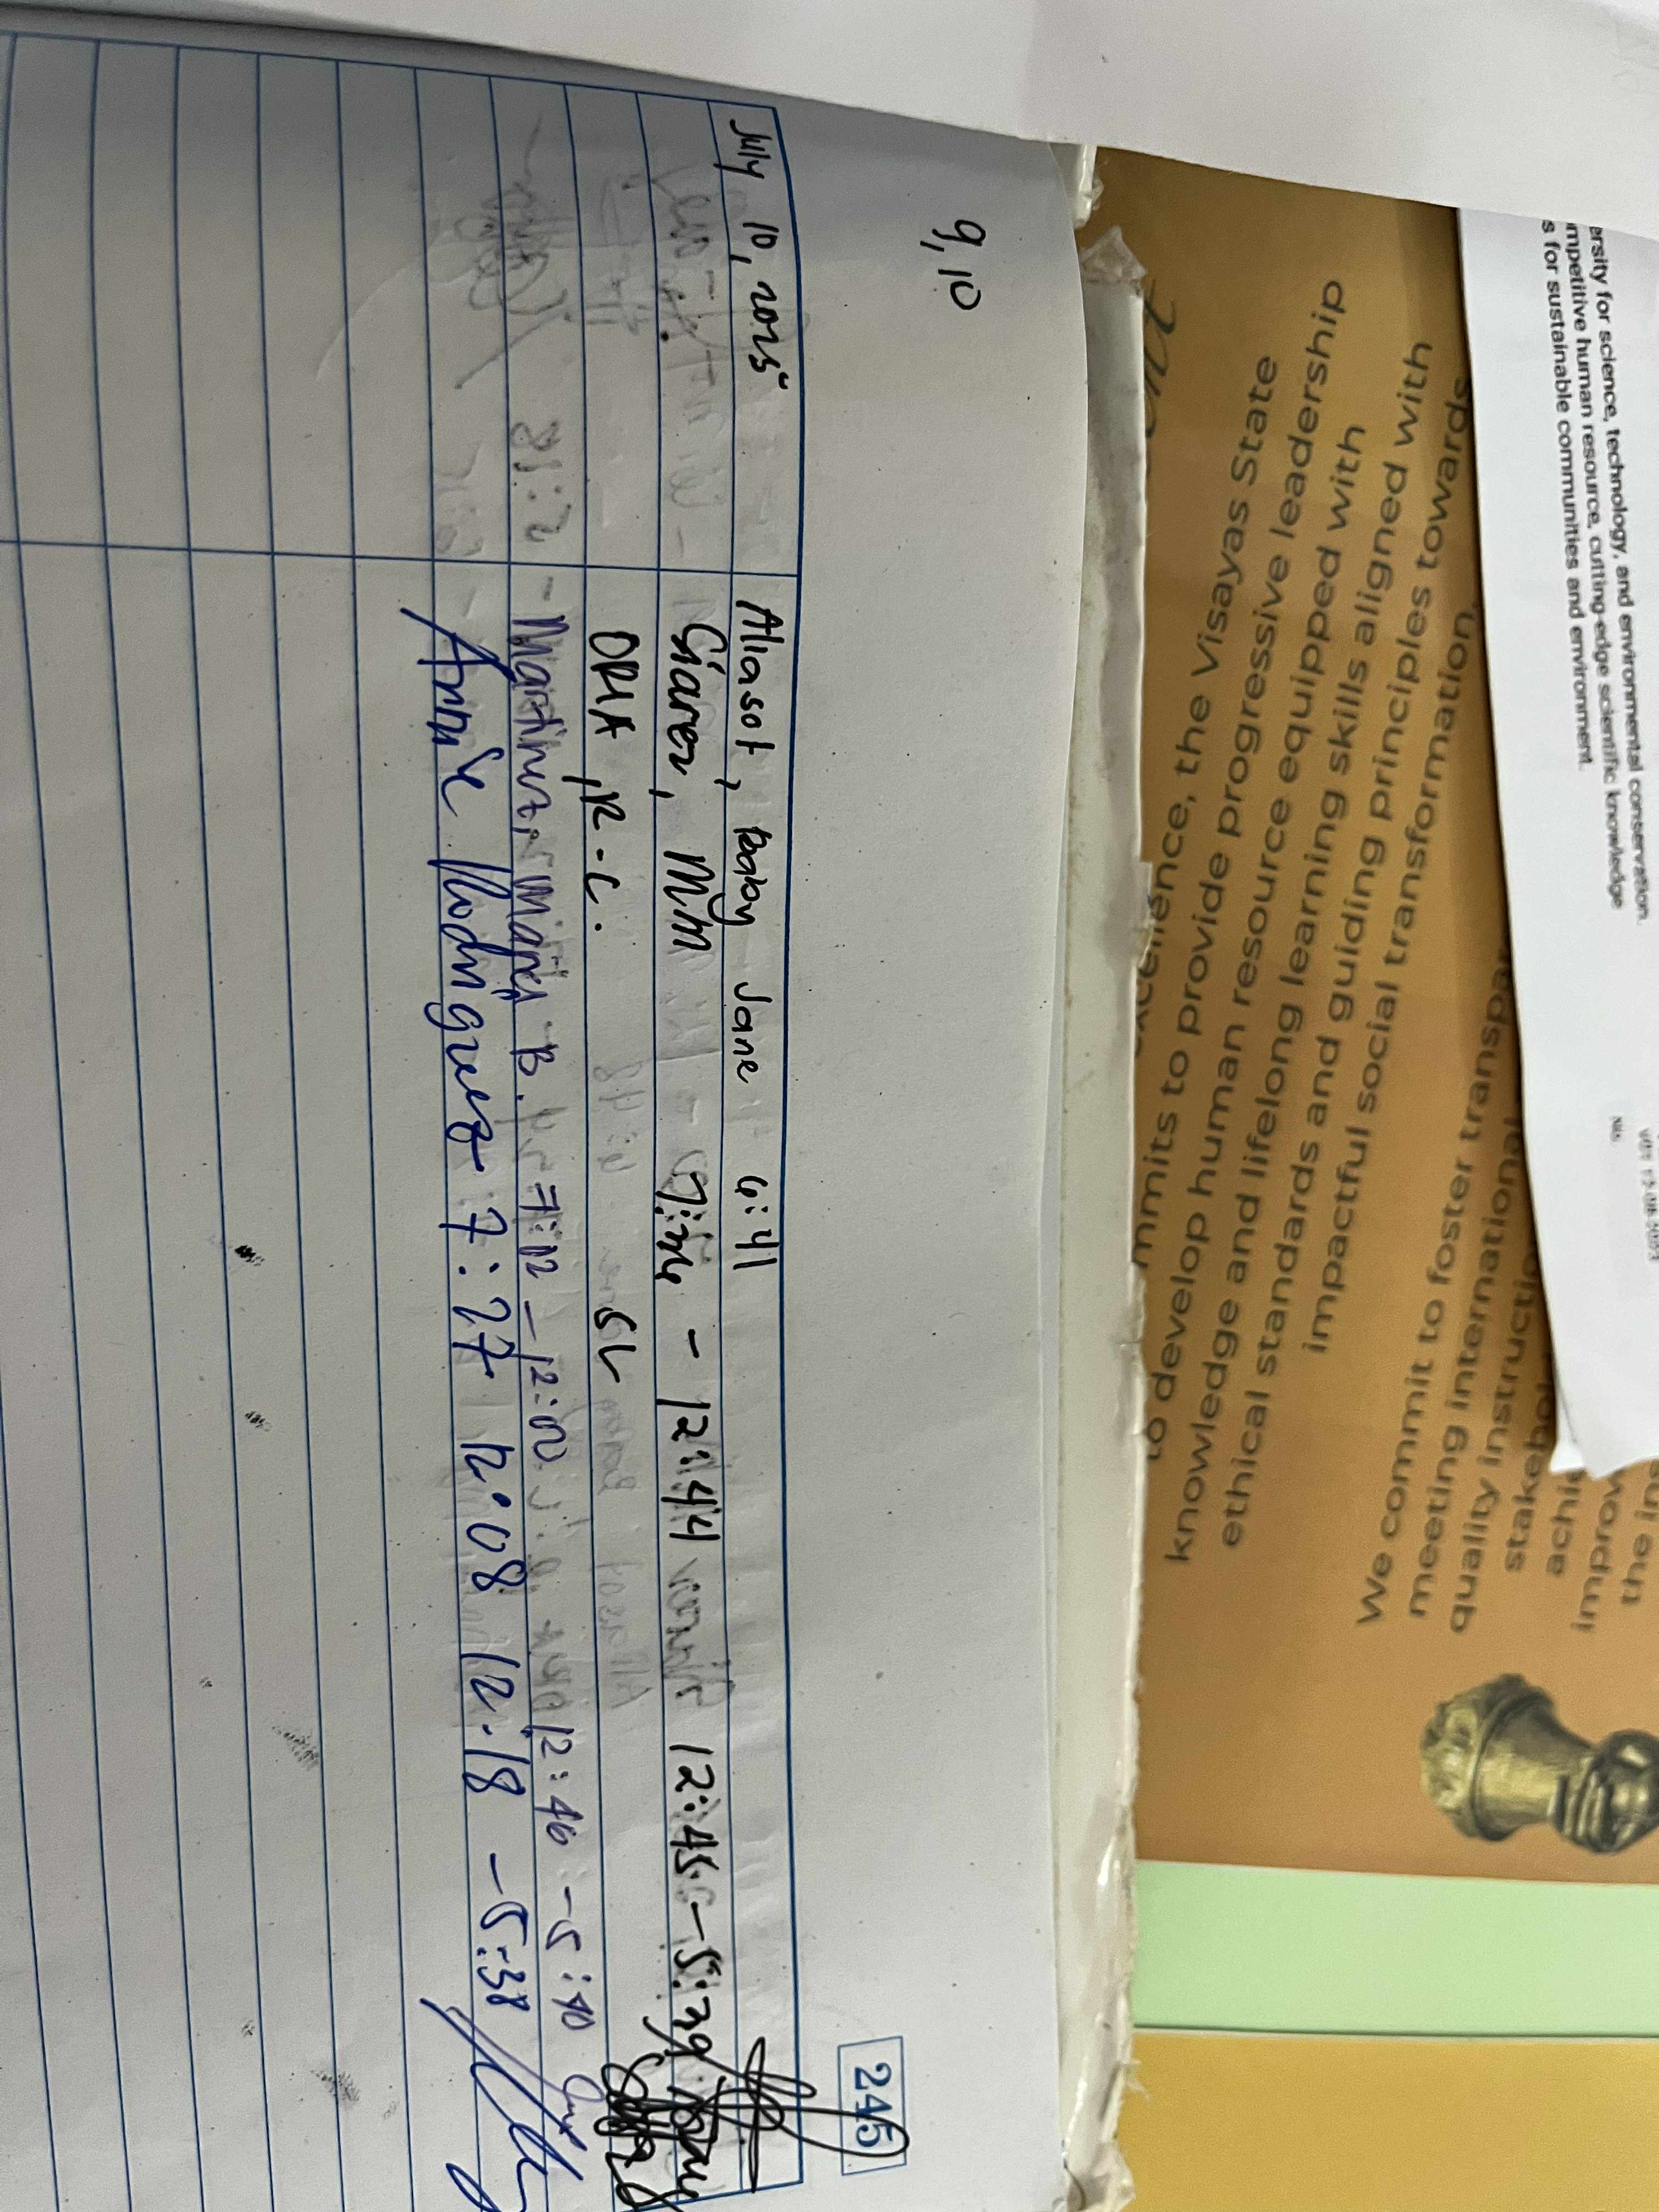 9, 10
245
July 10, 2025 Aliasot, Baby Jane 6:41
Giarez, MM 7:34 - 12:44 12:45 - 5:39
ORIA, R.C. SL
Martinez, Maria B. 7:12 - 12:00 12:46 - 5:40
Annie Rodriguez 7:27 12:08 12:18 - 5:38
ersity for science, technology, and environmental conservation.
mpetitive human resource, cutting-edge scientific knowledge
s for sustainable communities and environment.
excellence, the Visayas State
mmits to provide progressive leadership
to develop human resource equipped with
knowledge and lifelong learning skills aligned with
ethical standards and guiding principles towards
impactful social transformation.
We commit to foster transpar
meeting international
quality instructio
stakeho
achie
improv
the ins